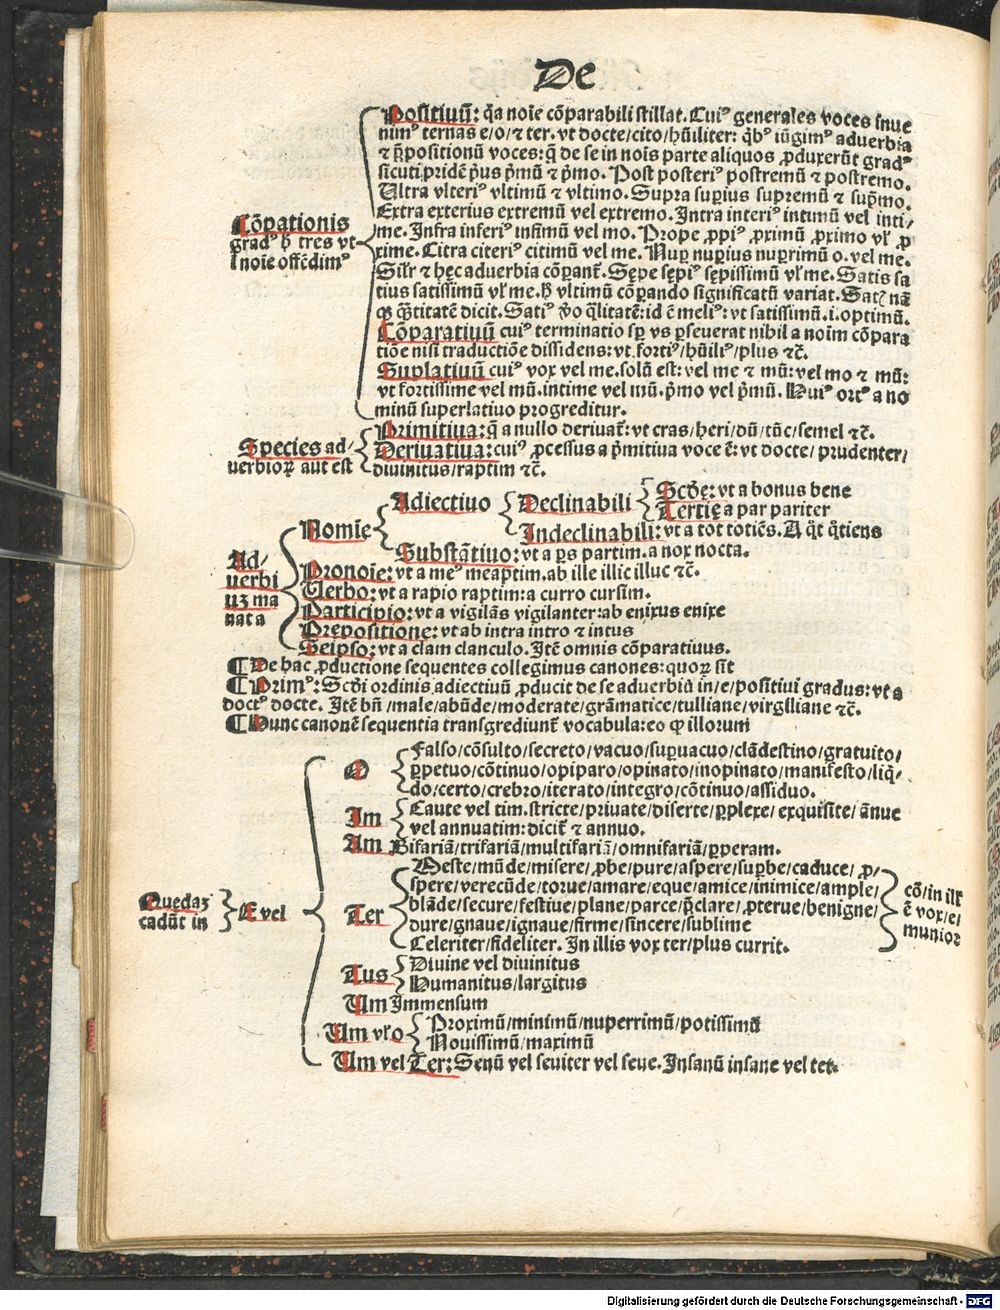 De
Positiuū: q̄a noīe cōparabili stillat. Cuiꝰ generales voces inue
nimꝰ ternas e/o/⁊ ter. vt docte/cito/hūiliter: q̄bꝰ iūgimꝰ aduerbia
⁊ p̄positionū voces: q̄ de se in noīs parte aliquos ꝓduxerūt gradꝰ
sicuti pridē pꝰus p̄mū ⁊ p̄mo. Post posteriꝰ postremū ⁊ postremo.
Ultra vlteriꝰ vltimū ⁊ vltimo. Supra suꝑius supremū ⁊ sup̄mo.
Extra exterius extremū vel extremo. Intra interiꝰ intimū vel inti/
me. Infra inferiꝰ infimū vel mo. Prope ꝓpiꝰ ꝓximū ꝓximo vł ꝓ
xime. Citra citeriꝰ citimū vel me. Nuꝑ nuꝑius nuꝑrimū o. vel me.
Silr ⁊ hęc aduerbia cōꝑant̄. Sępe sępiꝰ sępissimū vł me. Satis sa
tius satissimū vł me. h̄ vltimū cōꝑando significatū variat. Satꝭ nā
qꝫ q̄titatē dicit. Satiꝰ v̄o q̄litatē: id ē meliꝰ: vt satissimū. i. optimū.
Cōparatiuū cuiꝰ terminatio sꝑ vs ꝑseuerat nibil a noīm cōpara
tiōe nisi traductiōe dissidens: vt fortiꝰ/hūiliꝰ/plus ⁊c̄.
Suꝑlatiuū cuiꝰ vox vel me. solū est: vel me ⁊ mū: vel mo ⁊ mū:
vt fortissime vel mū. intime vel mū. p̄mo vel p̄mū. Huiꝰ ortꝰ a no
minū superlatiuo progreditur.
Cōpationis
gradꝰ h̄ tres vt
i noīe offēdimꝰ
Primitiua: q̄ a nullo deriuat̄: vt cras/heri/dū/tūc/semel ⁊c̄.
Species ad/
uerbioꝝ aut est
Deriuatiua: cuiꝰ ꝓcessus a p̄mitiua voce ē: vt docte/prudenter/
diuinitus/raptim ⁊c̄.
Ad/
uerbi
uꝫ ma
nat a
Nomie
Adiectiuo
Declinabili
Scd̄ę: vt a bonus bene
Tertię a par pariter
Indeclinabili: vt a tot totiēs. A q̄t q̄tiens
Substātiuo: vt a ꝑs partim. a nox nocta.
Pronoīe: vt a meꝰ meaptim. ab ille illic illuc ⁊c̄.
Uerbo: vt a rapio raptim: a curro cursim.
Participio: vt a vigilās vigilanter: ab enixus enixe
Prępositione: vt ab intra intro ⁊ intus
Seipso: vt a clam clanculo. Itē omnis cōparatiuus.
¶ De hac ꝓductione sequentes collegimus canones: quoꝝ sit
¶ Primꝰ: Scd̄i ordinis adiectiuū ꝓducit de se aduerbiū in/e/positiui gradus: vt a
doctꝰ docte. Itē bn̄/male/abūde/moderate/grāmatice/tulliane/virgiliane ⁊c̄.
¶ Hunc canonē sequentia transgrediunt̄ vocabula: eo ꝙ illorum
Quędaꝫ
cadūt in
E vel
O
Falso/cōsulto/secreto/vacuo/suꝑuacuo/clādestino/gratuito/
ꝑpetuo/cōtinuo/opiparo/opinato/inopinato/manifesto/liq̄-
do/certo/crebro/iterato/integro/cōtinuo/assiduo.
Im
Caute vel tim. stricte/priuate/diserte/ꝑplexe/exquisite/ānue
vel annuatim: dicit̄ ⁊ annuo.
Am Bifariā/trifariā/multifariā/omnifariā/ꝑperam.
Ter
Meste/mūde/misere/ꝓbe/pure/aspere/suꝑbe/caduce/ꝓ/
spere/verecūde/torue/amare/eque/amice/inimice/ample/
blāde/secure/festiue/plane/parce/p̄clare/ꝓterue/benigne/
dure/gnaue/ignaue/firme/sincere/sublime
Celeriter/fideliter. In illis vox ter/plus currit.
cō/in ill'
ē vox/e/
munior
Tus
Diuine vel diuinitus
Humanitus/largitus
Um Immensum
Um vł o
Proximū/minimū/nuperrimū/potissimū
Nouissimū/maximū
Um vel Ter: Senū vel seuiter vel seue. Insanū insane vel ter.
Digitalisierung gefördert durch die Deutsche Forschungsgemeinschaft - DFG